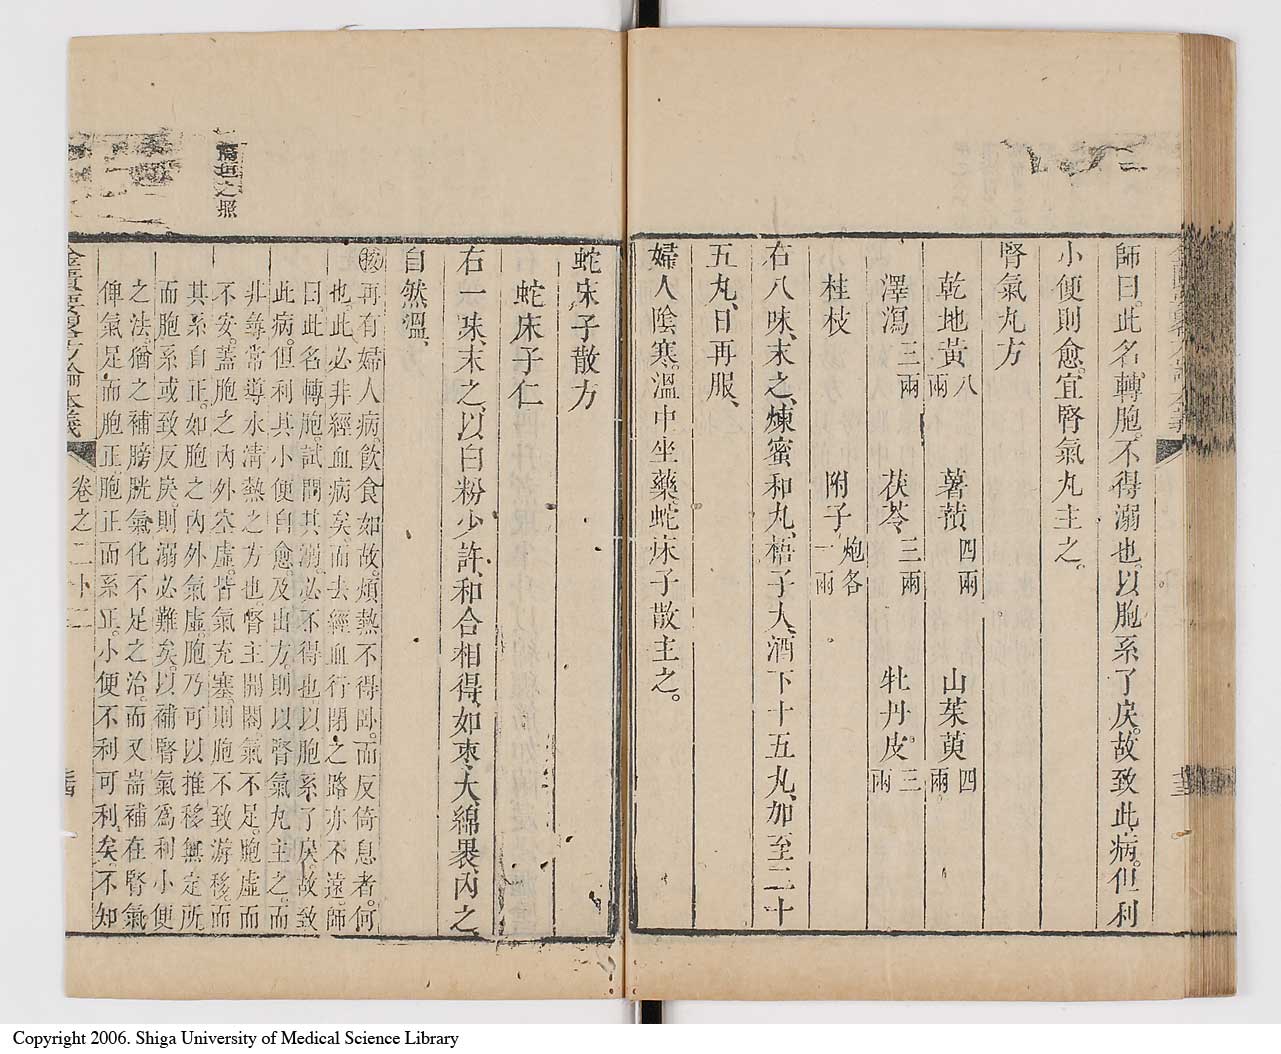 師曰。此名轉胞。不得溺也。以胞系了戾。故致此病。但利
小便則愈。宜腎氣丸主之。
腎氣丸方
乾地黃八兩 薯蕷四兩 山茱萸四兩
澤瀉三兩 茯苓三兩 牡丹皮三兩
桂枝 附子炮各一兩
右八味、末之、煉蜜和丸、梧子大、酒下十五丸、加至二十
五丸、日再服、
婦人陰寒。溫中坐藥。蛇床子散主之。
蛇床子散方
蛇床子仁
右一味、末之、以白粉少許、和合相得、如棗大、綿裹、內之、
自然溫、
再有婦人病。飲食如故。煩熱不得臥。而反倚息者。何
也。此必非經血病矣。而去經血行閉之路亦不遠。師
曰。此名轉胞。試問其溺。必不得也。以胞系了戾。故致
此病。但利其小便自愈。及出方。則以腎氣丸主之。而
非尋常導水清熱之方也。腎主開闔。氣不足。胞虛而
不安。蓋胞之內外空虛。苦氣充塞。則胞不致游移。而
其系自正。如胞之內外氣虛。胞乃可以推移無定所。
而胞系或致反戾。則溺必難矣。以補腎氣爲利小便
之法。猶之補膀胱氣化不足之治。而又耑補在腎氣
俾氣足而胞正。胞正而系正。小便不利可利矣。不知
金匱要畧方論本義
卷之二十二